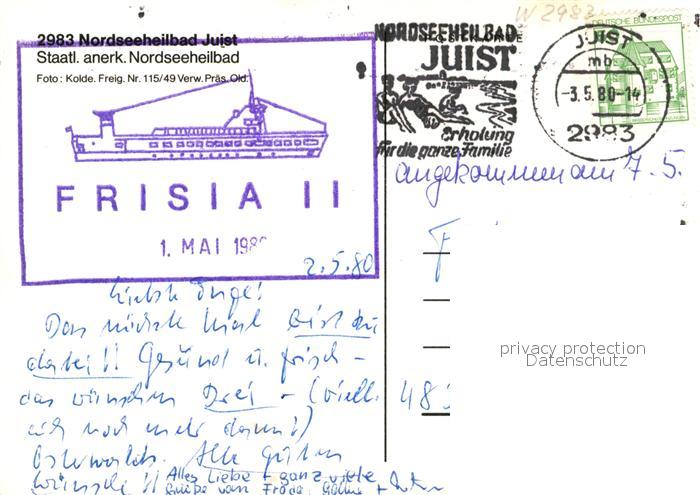 W 2983
2983 Nordseeheilbad Juist
Staatl. anerk. Nordseeheilbad
Foto: Kolde. Freig. Nr. 115/49 Verw. Präs. Old.
NORDSEEHEILBAD
JUIST
Erholung
für die ganze Familie
JUIST
mb
-3.5.80-14
2983
DEUTSCHE BUNDESPOST
FRISIA II
1. MAI 198
angekommen am 7.5.
2.5.80
Liebste Inge!
Das nächste Mal bist du
dabei!! Gesund u. frisch –
das wünschen Drei – (viell.
auch noch mehr dann!)
Alle guten
Wünsche!!
Alles Liebe + ganz viele
Grüße von
48
privacy protection
Datenschutz